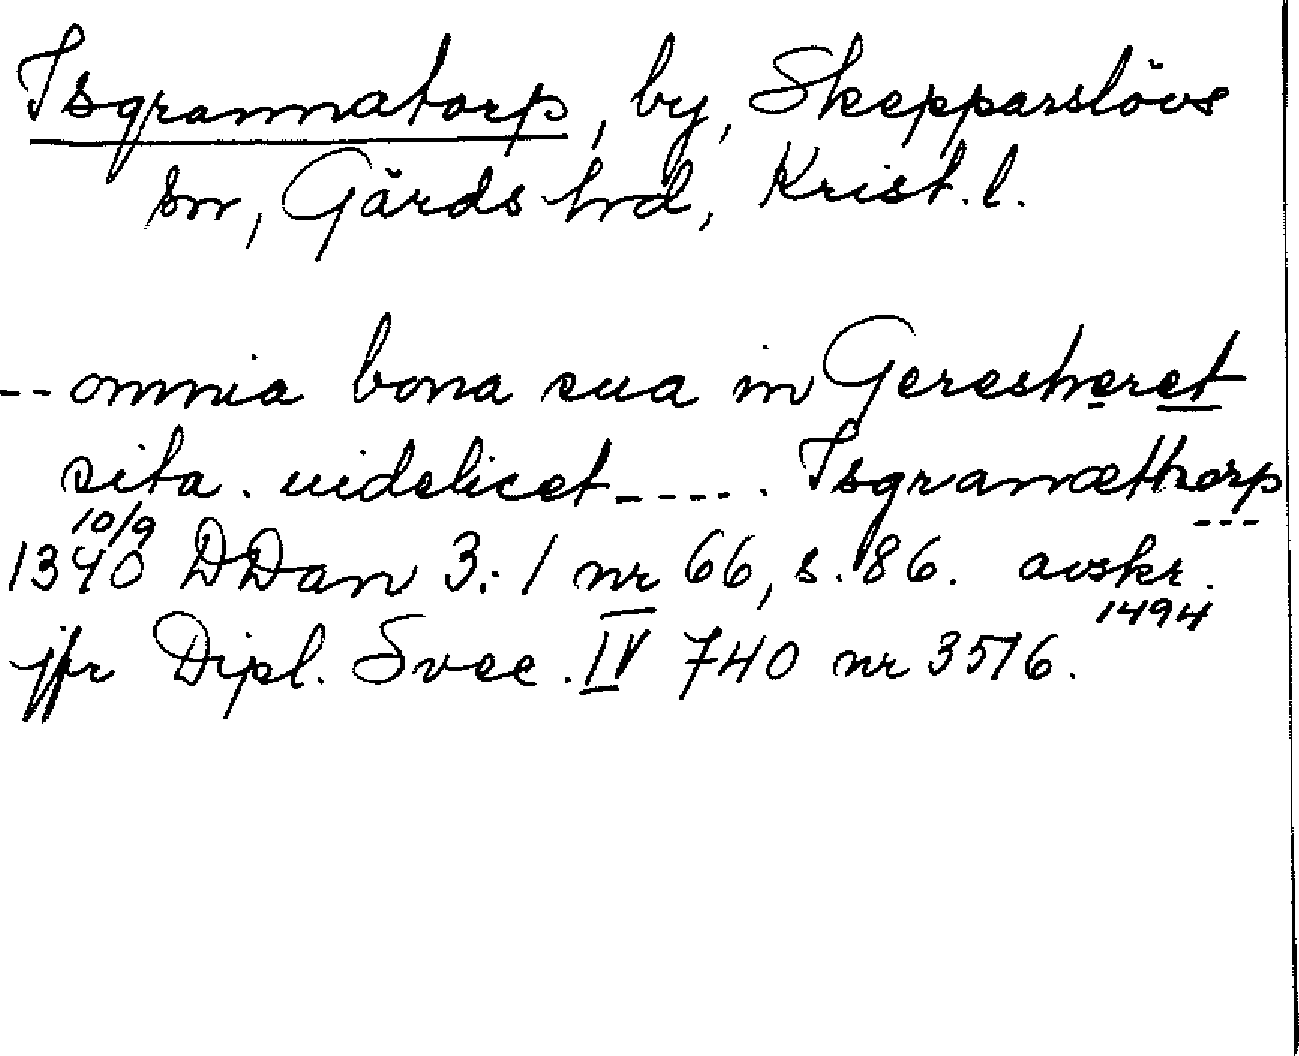 Isgrannatorp, by, Skepparslövs
sn, Gärds hd, Krist. l.
-- omnia bona sua in Geresheret
sita. uidelicet ----- . Isgranæthorp
10/9
1340 DDan 3:1 nr 66, s. 86. avskr.
1494
jfr Dipl. Svec. IV 740 nr 3516.